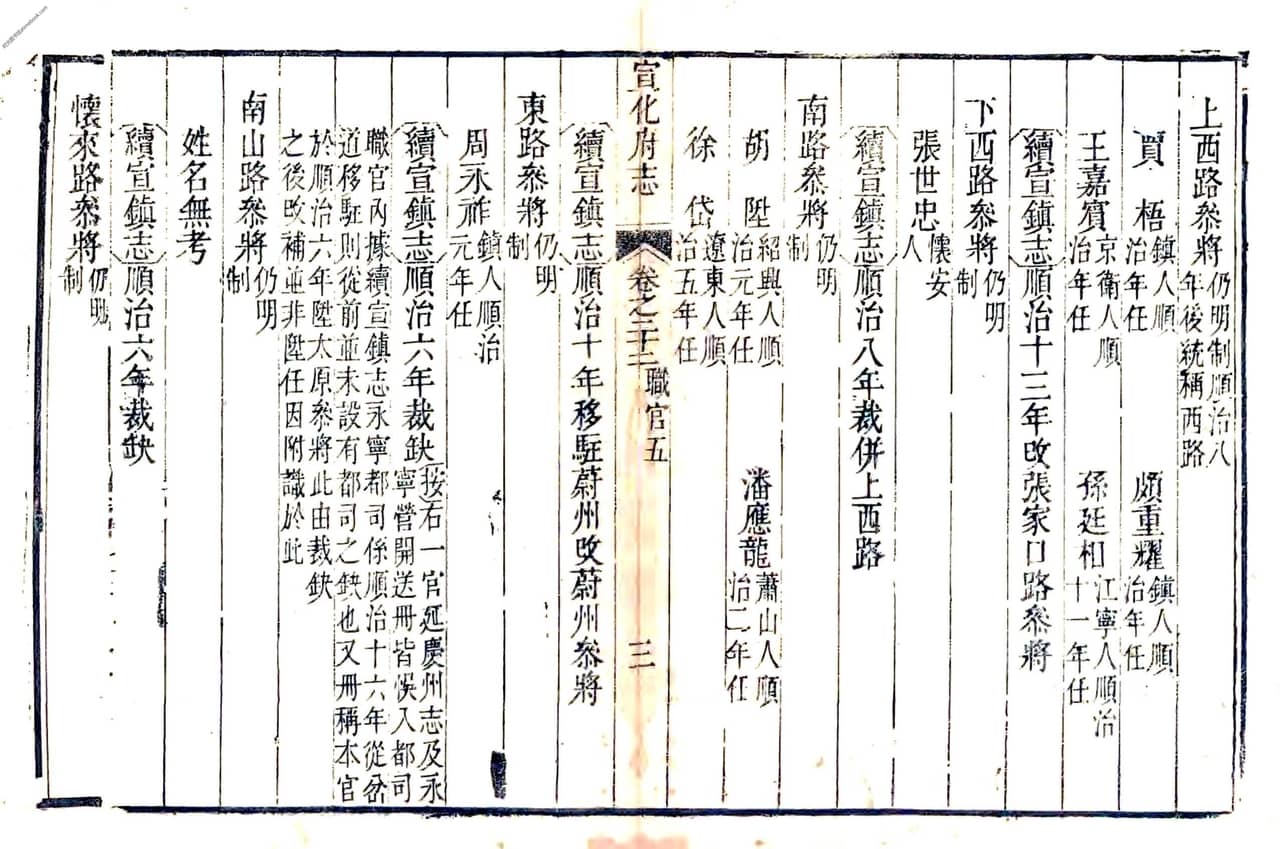 上西路叅將仍明制順治八年後統稱西路
賈梧鎮人順治年任 頗重耀鎮人順治年任
王嘉賓京衛人順治年任 孫廷相江寧人順治十一年任
續宣鎮志順治十三年改張家口路叅將
下西路叅將仍明制
張世忠懷安人
續宣鎮志順治八年裁併上西路
南路叅將仍明制
胡陞紹興人順治元年任 潘應龍蕭山人順治二年任
徐岱遼東人順治五年任
續宣鎮志順治十年移駐蔚州改蔚州叅將
宣化府志 卷之二十二 職官五 三
東路叅將仍明制
周永祚鎮人順治元年任
續宣鎮志順治六年裁缺按右一官延慶州志及永寧營開送冊皆悞入都司
職官內據續宣鎮志永寧都司係順治十六年從岔道移駐則從前並未設有都司之缺也又冊稱本官
於順治六年陞太原叅將此由裁缺之後改補並非陞任因附識於此
南山路叅將仍明制
姓名無考
續宣鎮志順治六年裁缺
懷來路叅將仍明制